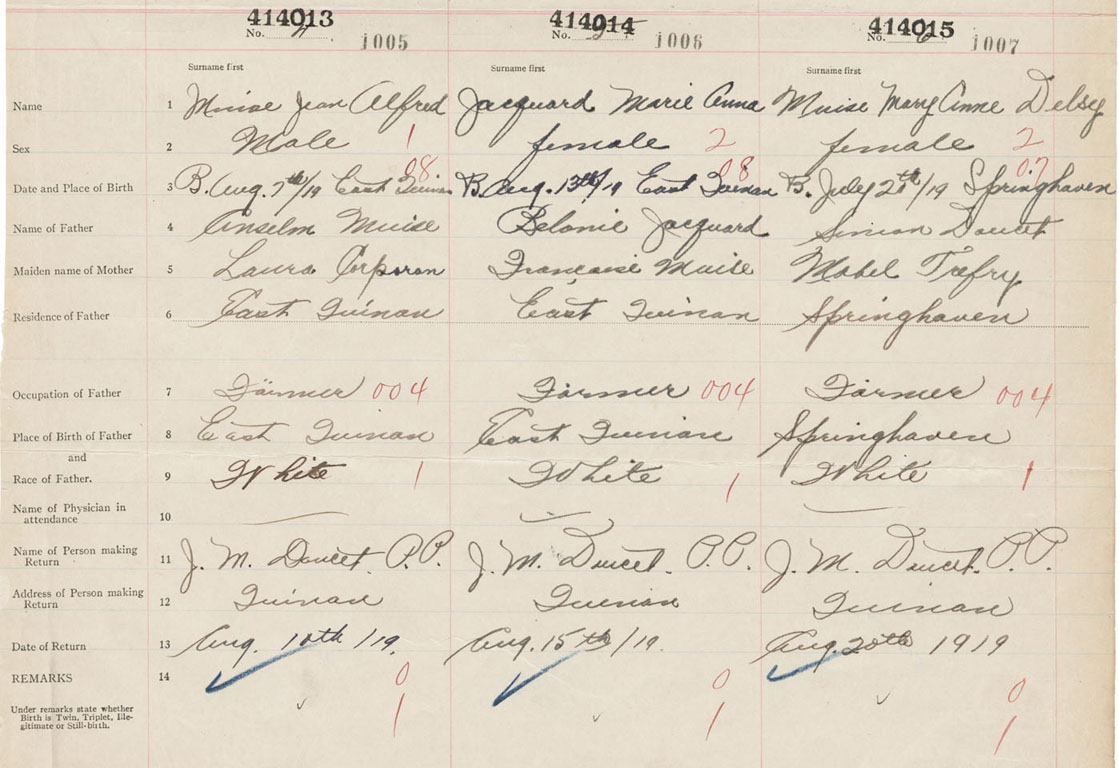 414013 414014 414015
No. 4 1005 No. 5 1006 No. 6 1007
Surname first Surname first Surname first
Name 1 Muise Jean Alfred Jacquard Marie Anna Muise Mary Anne Delsey
Sex 2 Male 1 female 2 female 2
08 08 07
Date and Place of Birth 3 B. Aug. 7th/19 East Quinan B. Aug. 13th/19 East Quinan B. July 20th/19 Springhaven
Name of Father 4 Anselm Muise Belonie Jacquard Simon Doucet
Maiden name of Mother 5 Laura Corporon Francoise Muise Mabel Trefry
Residence of Father 6 East Quinan East Quinan Springhaven
Occupation of Father 7 Farmer 004 Farmer 004 Farmer 004
Place of Birth of Father 8 East Quinan East Quinan Springhaven
and
Race of Father. 9 White 1 White 1 White 1
Name of Physician in
attendance 10
Name of Person making
Return 11 J. M. Doucet. P.P. J. M. Doucet. P.P. J. M. Doucet. P.P.
Address of Person making
Return 12 Quinan Quinan Quinan
Date of Return 13 Aug. 10th/19. Aug. 15th/19. Aug. 20th 1919
REMARKS 14 0 0 0
Under remarks state whether
Birth is Twin, Triplet, Ille-
gitimate or Still-birth. 1 1 1